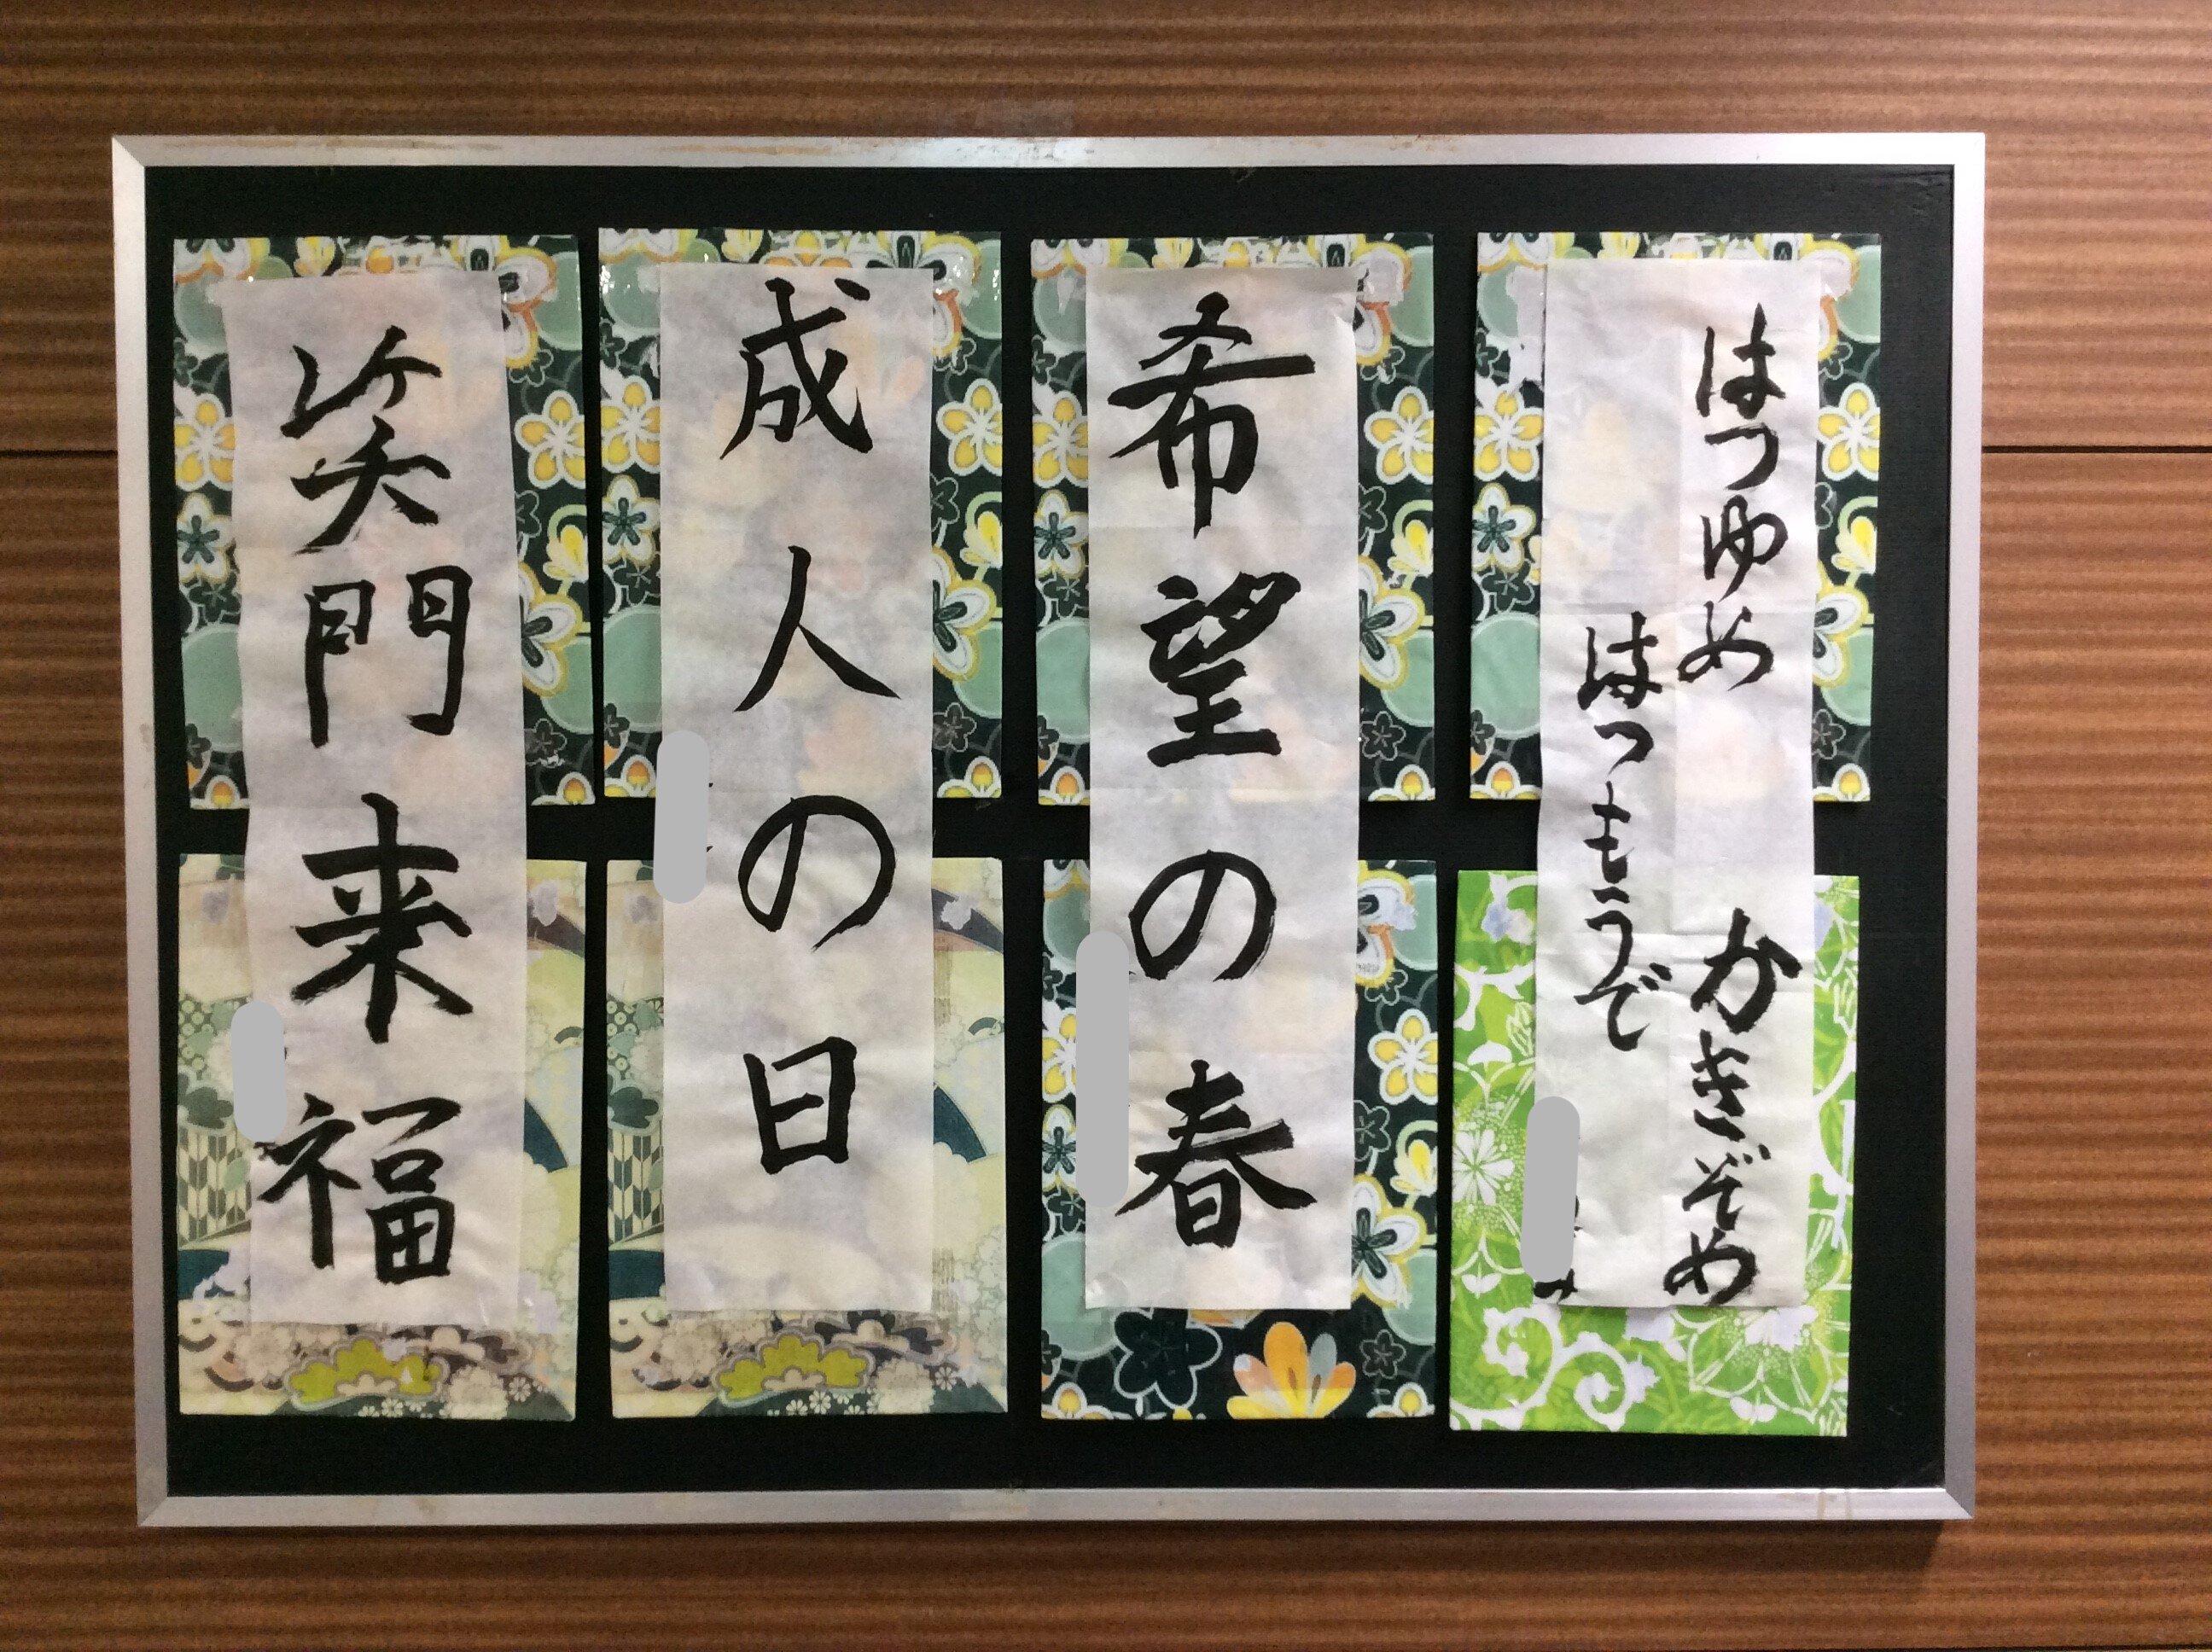 はつゆめ　かきぞめ
はつもうで
希望の春
成人の日
笑門来福